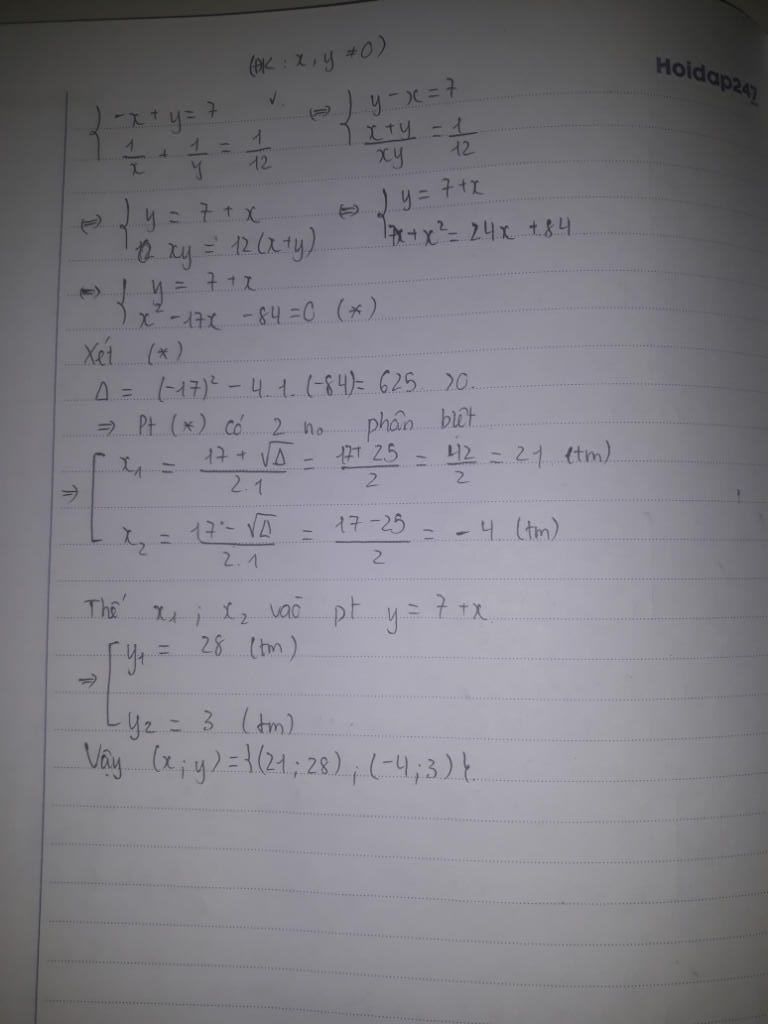 (ĐK : x, y ≠ 0)
Hoidap247
{ -x + y = 7 ⇔ { y - x = 7
1/x + 1/y = 1/12 (x+y)/xy = 1/12
⇔ { y = 7 + x ⇔ { y = 7+x
xy = 12(x+y) 7x+x² = 24x + 84
⇔ { y = 7 + x
x² - 17x - 84 = 0 (*)
Xét (*)
Δ = (-17)² - 4.1.(-84) = 625 >0.
⇒ Pt (*) có 2 no phân biêt
⇒ [ x₁ = (17 + √Δ)/2.1 = (17+25)/2 = 42/2 = 21 (tm)
x₂ = (17 - √Δ)/2.1 = (17-25)/2 = -4 (tm)
Thế x₁ ; x₂ vaò pt y = 7 + x
⇒ [ y₁ = 28 (tm)
y₂ = 3 (tm)
Vậy (x; y) = {(21; 28) ; (-4; 3)}.